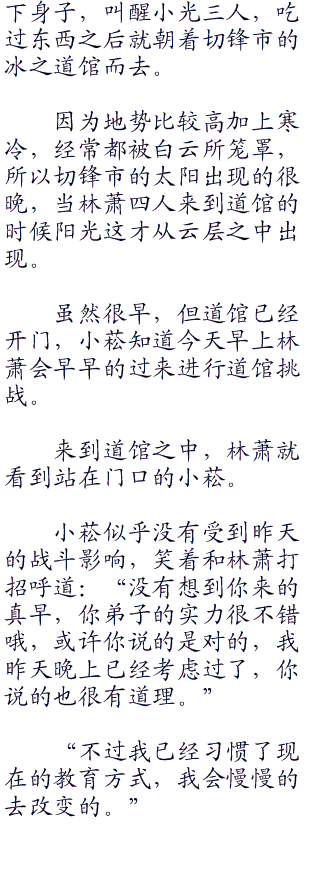 下身子，叫醒小光三人，吃
过东西之后就朝着切锋市的
冰之道馆而去。
因为地势比较高加上寒
冷，经常都被白云所笼罩，
所以切锋市的太阳出现的很
晚，当林萧四人来到道馆的
时候阳光这才从云层之中出
现。
虽然很早，但道馆已经
开门，小菘知道今天早上林
萧会早早的过来进行道馆挑
战。
来到道馆之中，林萧就
看到站在门口的小菘。
小菘似乎没有受到昨天
的战斗影响，笑着和林萧打
招呼道：“没有想到你来的
真早，你弟子的实力很不错
哦，或许你说的是对的，我
昨天晚上已经考虑过了，你
说的也很有道理。”
“不过我已经习惯了现
在的教育方式，我会慢慢的
去改变的。”